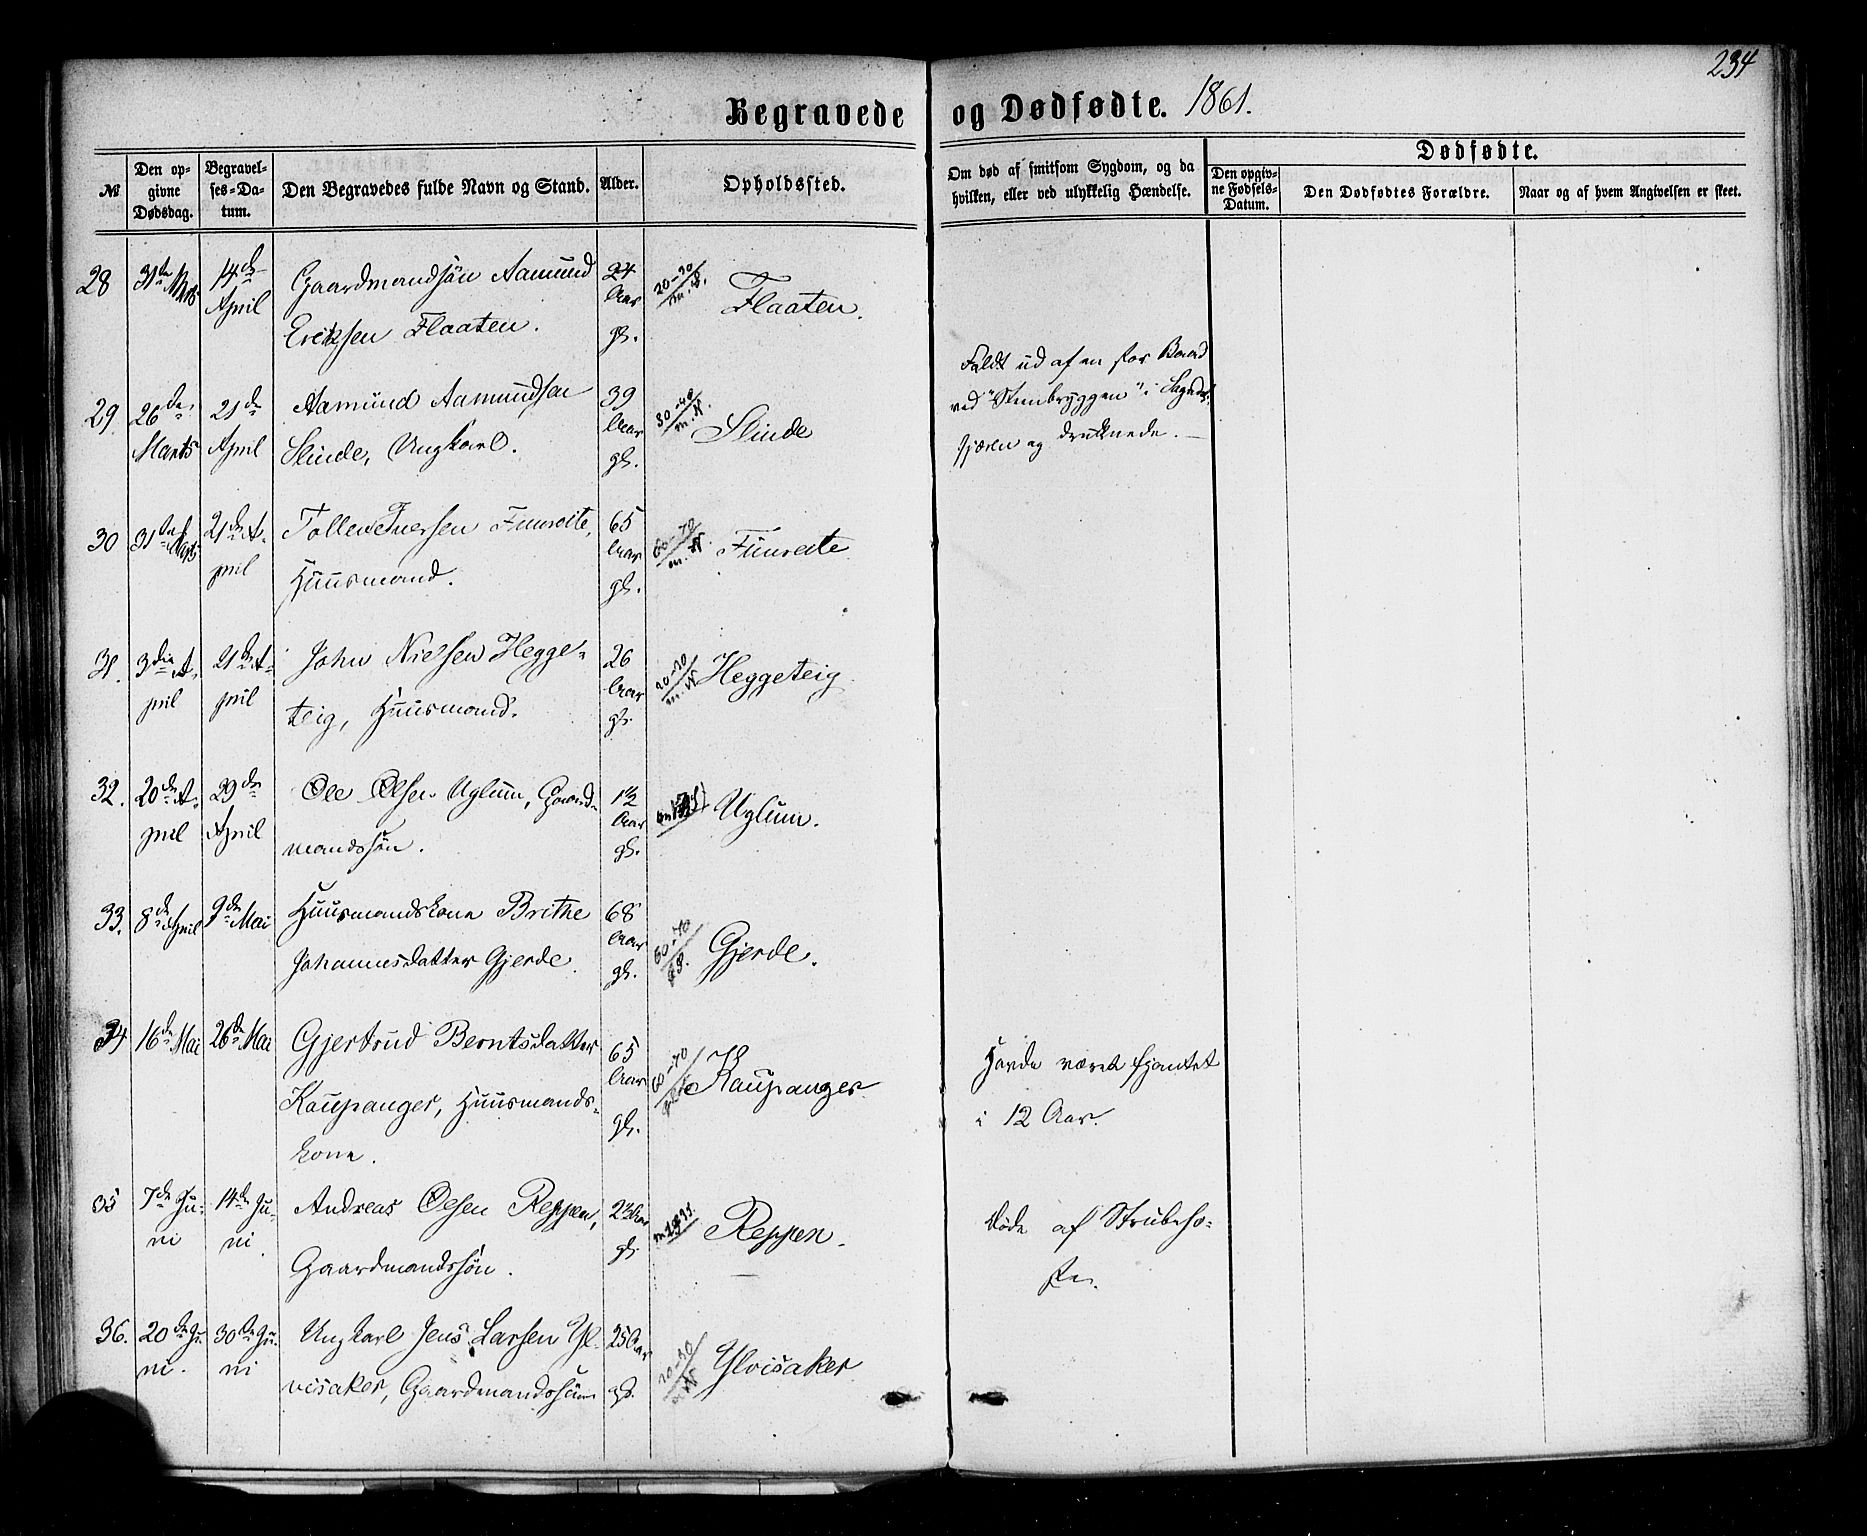 234
Begravede og Dødfødte. 1861.
№
Den opgivne Dødsdag.
Begravelses-Datum.
Den Begravedes fulde Navn og Stand.
Alder.
Opholdssted.
Om død af smitsom Sygdom, og da
hvilken, eller ved ulykkelig Hændelse.
Dødfødte.
Den opgivne Fødsels-Datum.
Den Dødfødtes Forældre.
Naar og af hvem Angivelsen er skeet.
28 31te Marts 14de April Gaardmandssön Aamund
Eriksen Flaaten. 24 Aar gl. 20-30 Flaaten.
29. 26de Marts 21de April Aamund Aamundsen
Slinde, Ungkarl. 39 Aar gl. 30-40 Slinde
Faldt ud af en stor Baad
ved "Steenbryggen" i
og druknede.
30 31te Marts 21de April Tollev Iversen Fimreite,
Huusmand. 65 Aar gl. 60-70 Fimreite
31. 3die April 21de April John Nielsen Hegge-
teig, Huusmand. 26 Aar gl. 20-30 Heggeteig
32. 20de April 29de April Ole Olsen Uglum, Gaard-
mandssön. 1½ Aar gl. Uglum.
33. 8de April 9de Mai Huusmandskone Brithe
Johannesdatter Gjerde. 68 Aar gl. 60-70 Gjerde.
34 16de Mai 26de Mai Gjertrud Berntsdatter
Kaupanger, Huusmands-
kone. 65 Aar gl. 60-70 Kaupanger
Havde været
i 12 Aar.
35 7de Juni 14de Juni Andreas Olsen Reppen,
Gaardmandssön. Aar gl. Reppen.
Døde af Strubeho-
ste.
36. 20de Juni. 30te Juni Ungkarl Jens Larsen Yl-
visaker, Gaardmandssön 25 Aar gl. 20-30 Ylvisaker